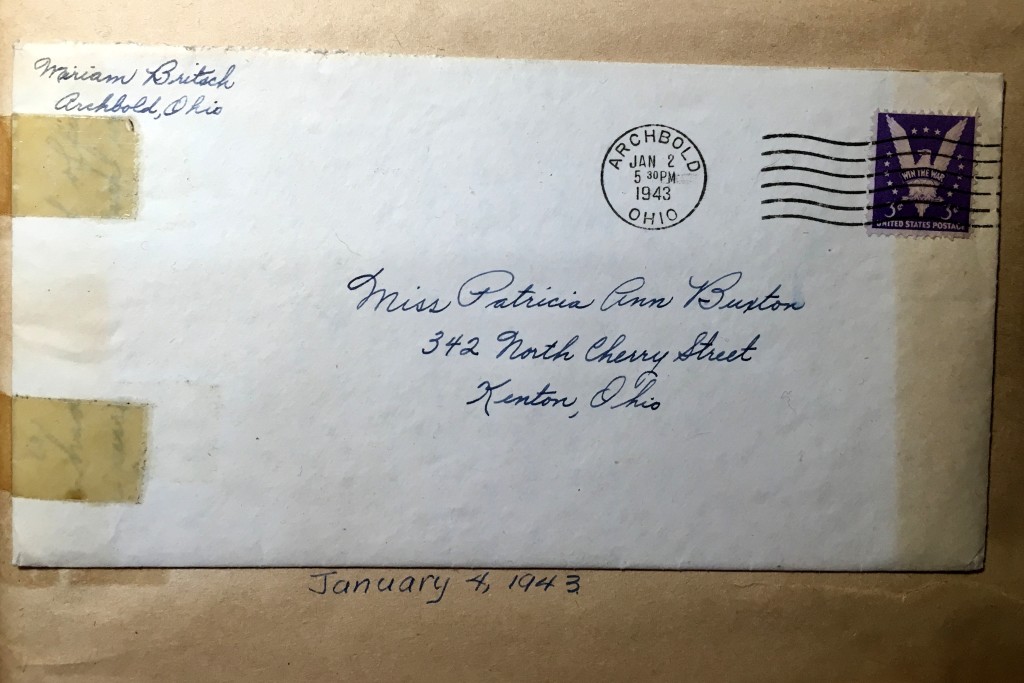 Miriam Britsch
Archbold, Ohio
ARCHBOLD
JAN 2
5 30PM
1943
OHIO
WIN THE WAR
3¢ 3¢
UNITED STATES POSTAGE
Miss Patricia Ann Buxton
342 North Cherry Street
Kenton, Ohio
January 4, 1943